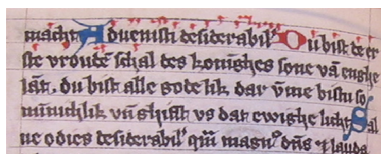 macht Aduenisti desiderabil' Du bist de er
ste vroude schal des koninghes sone vā enghe
lāt. du bist alle gode lik dar vm̄e bistu so
minnichlik vn̄ schist vs dat ewighe licht Sal
ue o dies desiderabil' qm̄ magn' dn̄s ⁊ lauda